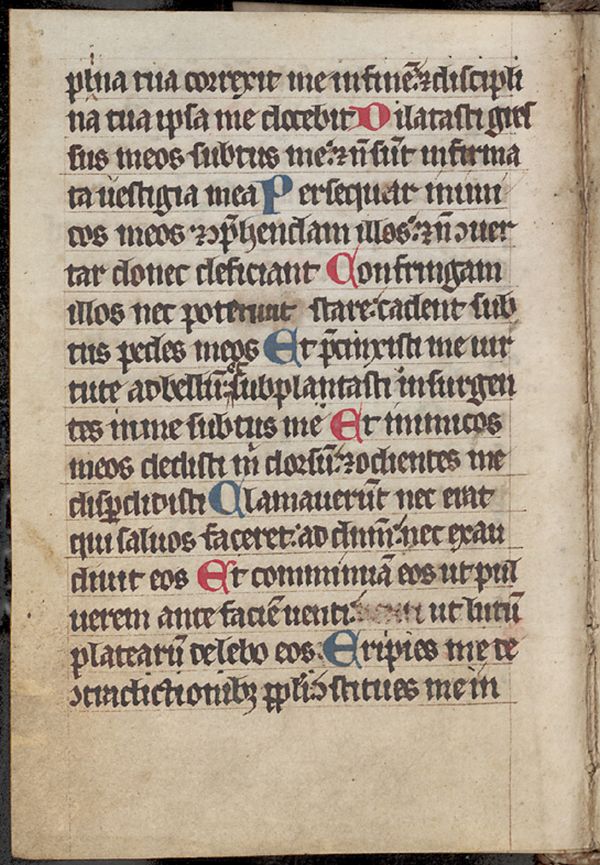 plina tua correxit me in finē: ⁊ discipli
na tua ipsa me docebit Dilatasti gres
sus meos subtus me: ⁊ n̄ sūt infirma
ta uestigia mea Persequar inimi
cos meos ⁊ ↄp̄hendam illos: ⁊ n̄ ↄuer
tar donec deficiant Confringam
illos nec poterunt stare: cadent sub
tus pedes meos Et p̄cinxisti me uir
tute ad bellū: ⁊ subplantasti insurgen
tes in me subtus me Et inimicos
meos dedisti m̄ dorsū: ⁊ odientes me
disꝑdidisti Clamauerūt nec erat
qui saluos faceret: ad dnm̄ nec exau
diuit eos Et comminuā eos ut pul
uerem ante faciē uenti: ut lutū
platearū delebo eos: Eripies me de
ↄtradictionibꝫ ppli: ↄstitues me in